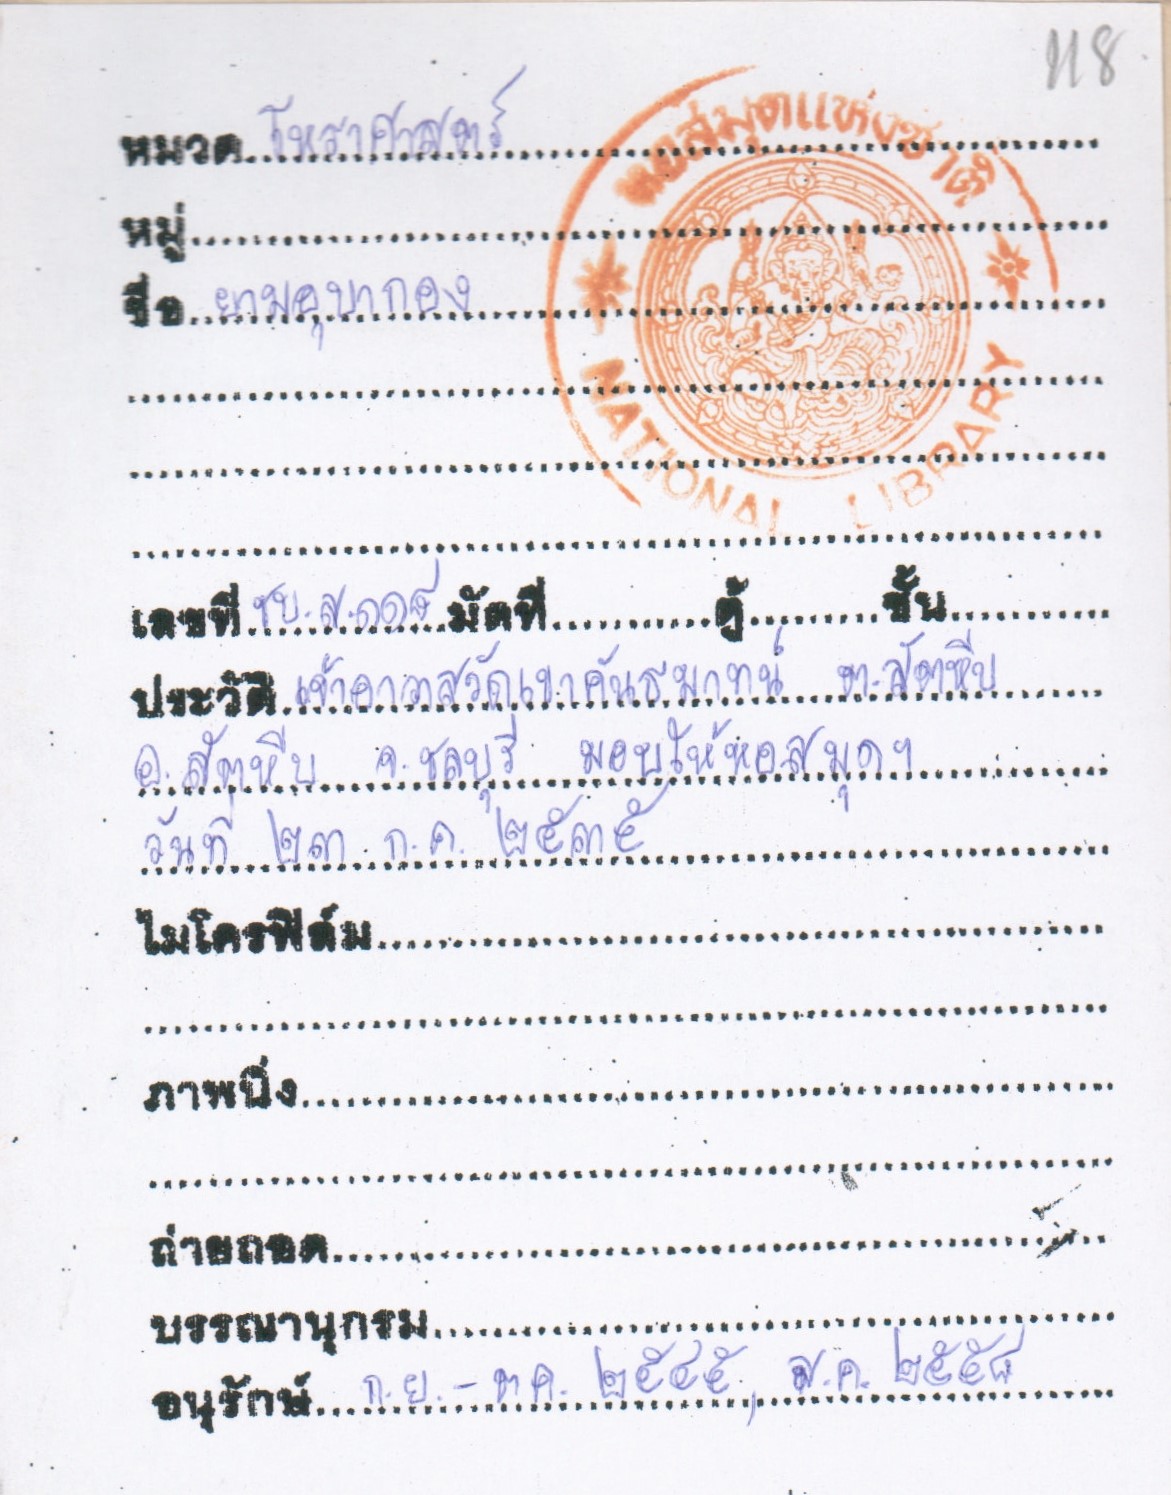 118
หอสมุดแห่งชาติ
NATIONAL LIBRARY
หมวด โหราศาสตร์
หมู่
ชื่อ ยามอุบากอง
เลขที่ ชบ.ส.๑๑๙ มัดที่ ตู้ ชั้น
ประวัติ เจ้าอาวาสวัดเขาคันธมาทน์ ต.สัตหีบ
อ.สัตหีบ จ.ชลบุรี มอบให้หอสมุดฯ
วันที่ ๒๓ ก.ค. ๒๕๓๕
ไมโครฟิล์ม
ภาพนิ่ง
ถ่ายถอด
บรรณานุกรม
อนุรักษ์ ก.ย.-ตค. ๒๕๔๕, ส.ค. ๒๕๕๘